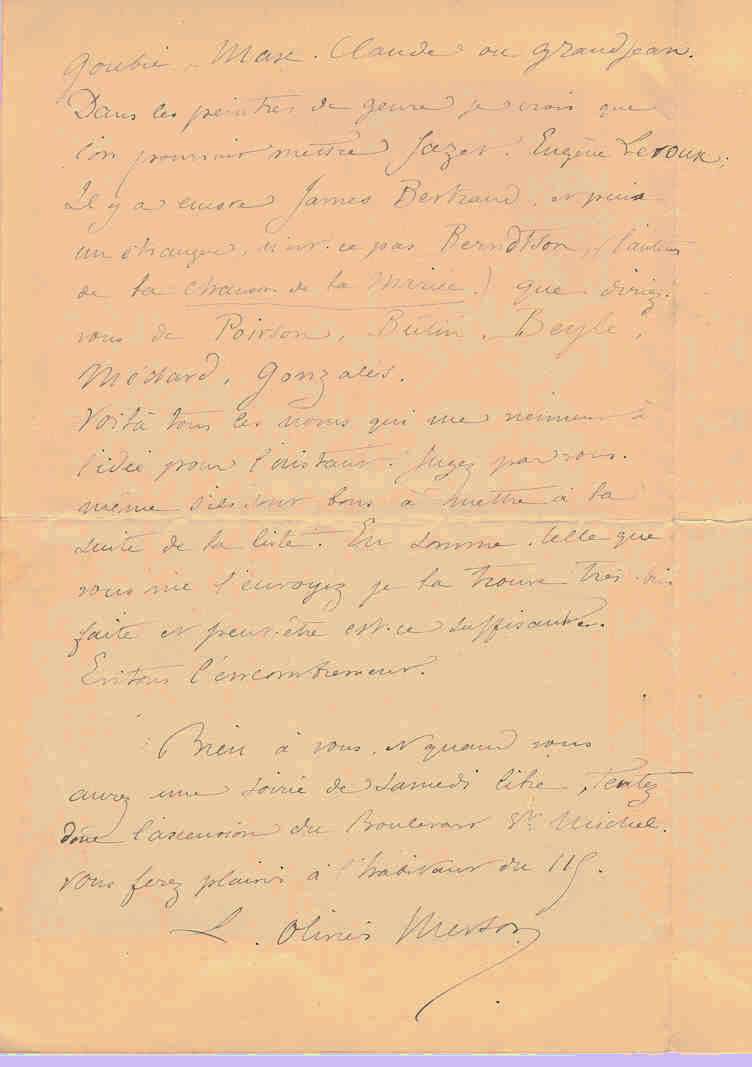 Goubie, Max. Claude ou Grandjean.
Dans les peintres de genre je crois que
l'on pourrait mettre Jazet. Eugène Leroux;
Il y a encore James Bertrand, et puis
un étranger, n'est-ce pas Berndtson, (l'auteur
de la chanson de la Mariée.) que diriez-
vous de Poirson, Butin, Beyle,
Médard, Gonzalès.
Voilà tous les noms qui me viennent à
l'idée pour l'instant. Jugez par vous-
même s'ils sont bons à mettre à la
suite de la liste. En somme, telle que
vous me l'envoyez je la trouve très bien
faite et peut-être est-ce suffisant.
Evitons l'encombrement.
Bien à vous, et quand vous
aurez une soirée de Samedi libre, tentez
donc l'ascension du Boulevard St Michel.
Vous ferez plaisir à l'habitant du 115.
L. Olivier Merson